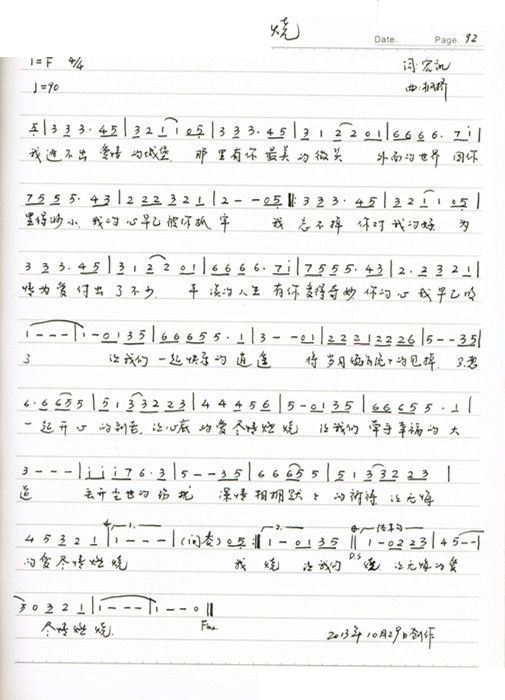 烧 Date. Page. 92
1=F 4/4 词:宏
♩=90 曲:
5|3 3 3. 4 5|3 2 1 1 0 5|3 3 3. 4 5|3 1 2 2 0 1|6 6 6 6. 7 i|
我逃不出 爱情的城堡 那里有你最美的微笑 外面的世界因你
7 5 5 5. 4 3|2 2 2 3 2 1|2 - - 0 5‖:3 3 3. 4 5|3 2 1 1 0 5|
变得妙小 我的心早已被你抓牢 我忘不掉 你对我的好 为
3 3 3. 4 5|3 1 2 2 0 1|6 6 6 6. 7 i|7 5 5 5. 4 3|2. 2 3 2 1|
情为爱付出了不少 平淡的人生有你变得奇妙 你的心我早已明
1 - - -|1 - 0 1 3 5|6 6 6 5 5. 1|3 - - 0 1|2 2 2 1 2 2 2 6|5 - - 3 5|
了 让我们一起快乐的逍遥 将岁月 的 掉
6. 6 6 5 5|5 1 3 3 2 2 3|4 4 4 5 6|5 - 0 1 3 5|6 6 6 5 5. 1|
一起开心的 让心底的爱尽情燃烧 让我们牵手幸福的大
3 - - -|i i i 7 6. 3|5 - - 3 5|6 6 6 5 5|5 1 3 3 2 2 3|
道 去开尘世的 扰 深情相拥默々的祈祷 让无悔
4 5 3 2 1|1 - - -|(间奏) 0 5:‖1 - 0 1 3 5‖1 - 0 2 2 3|4 5 - -|
1. 2. 结束句
的爱尽情燃烧 我 烧 让我们 D.S 烧 让无悔的爱
3 0 3 2 1|1 - - -|1 - - 0‖
尽情燃烧 Fine 2013年10月29日创作